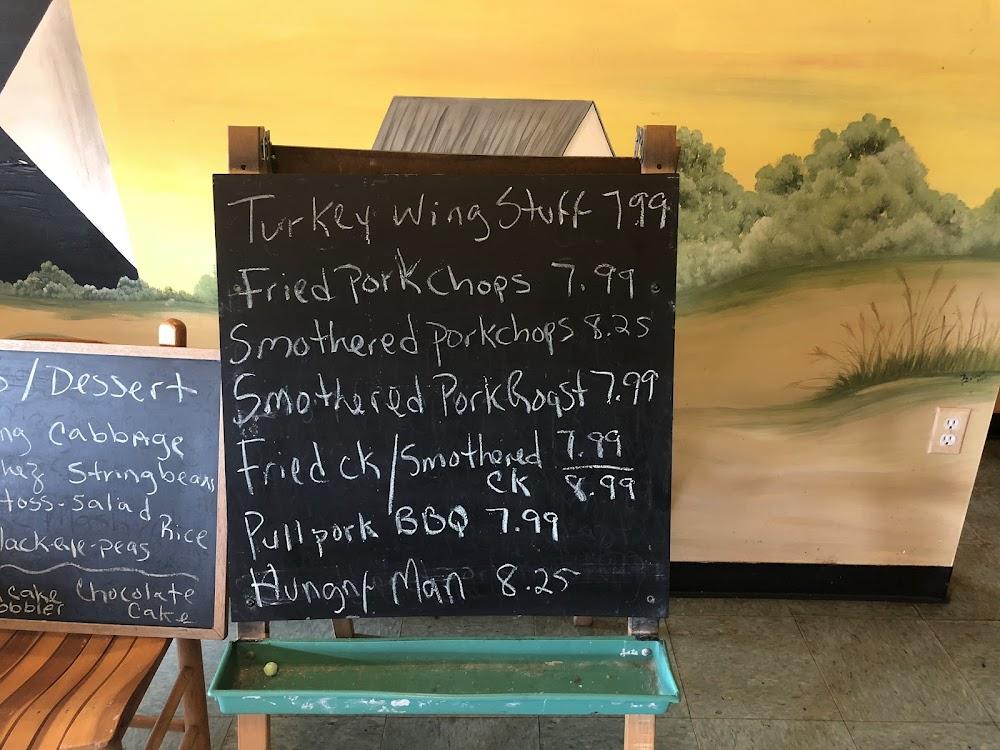 Turkey Wing Stuff 7.99
Fried Pork Chops 7.99
Smothered Porkchops 8.25
Smothered Pork Roast 7.99
Fried ck / Smothered ck 7.99 8.99
Pull pork BBQ 7.99
Hungry Man 8.25
/ Dessert
Cabbage
Stringbeans
toss-salad
Rice
eye-peas
Cake Chocolate
Cake